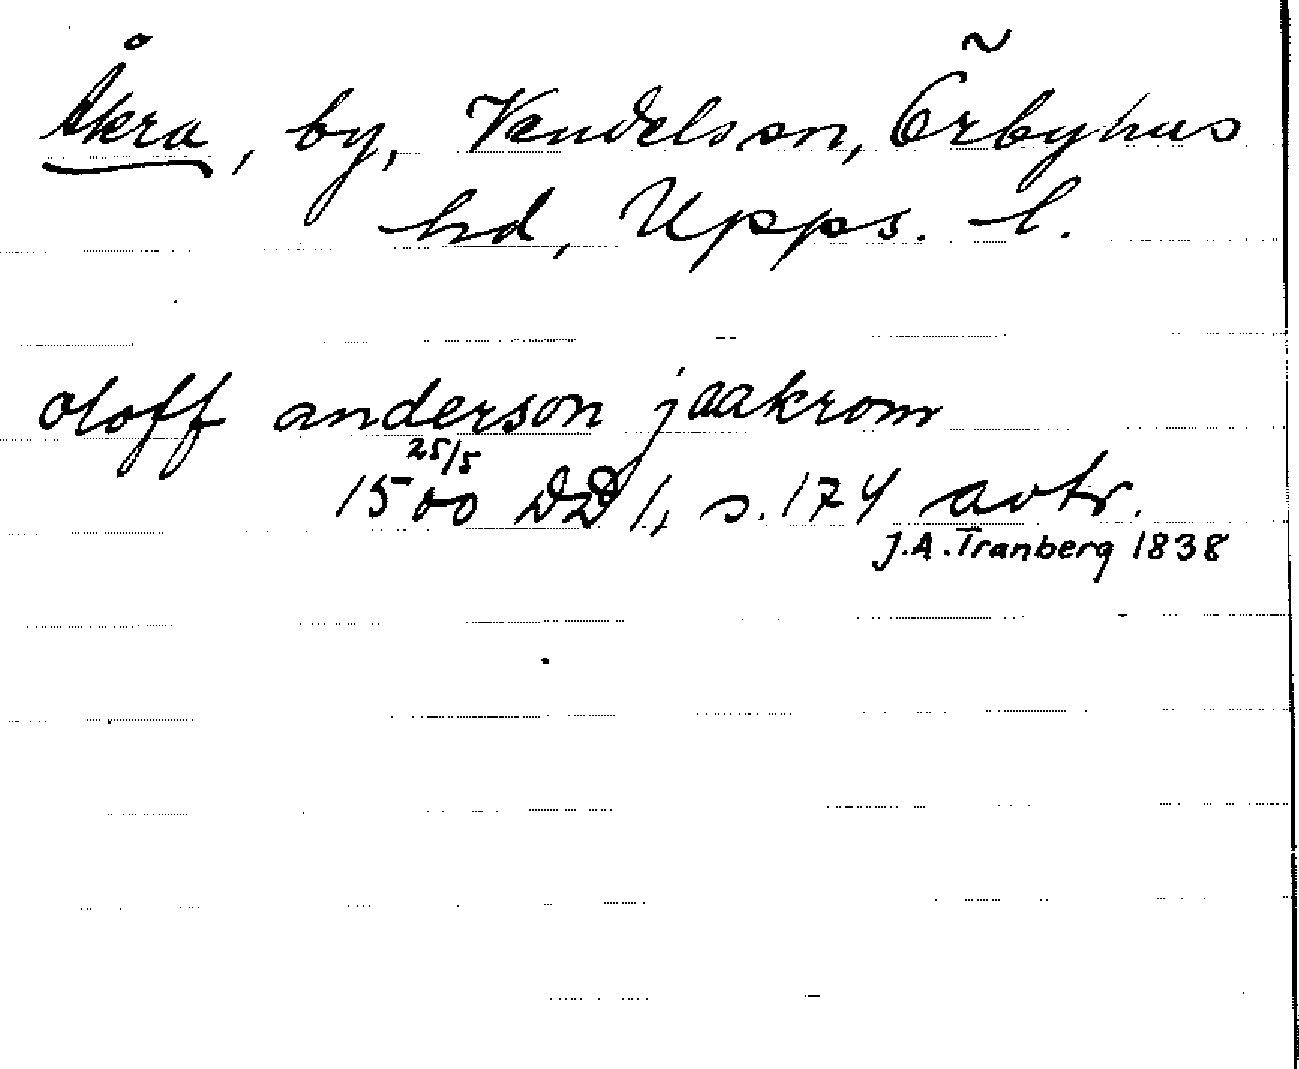 Åkra, by, Vendels sn, Örbyhus
hd, Upps. l.
oloff anderson j aakrom
25/5
1500 DD 1, s. 174 avtr.
J.A. Tranberg 1838